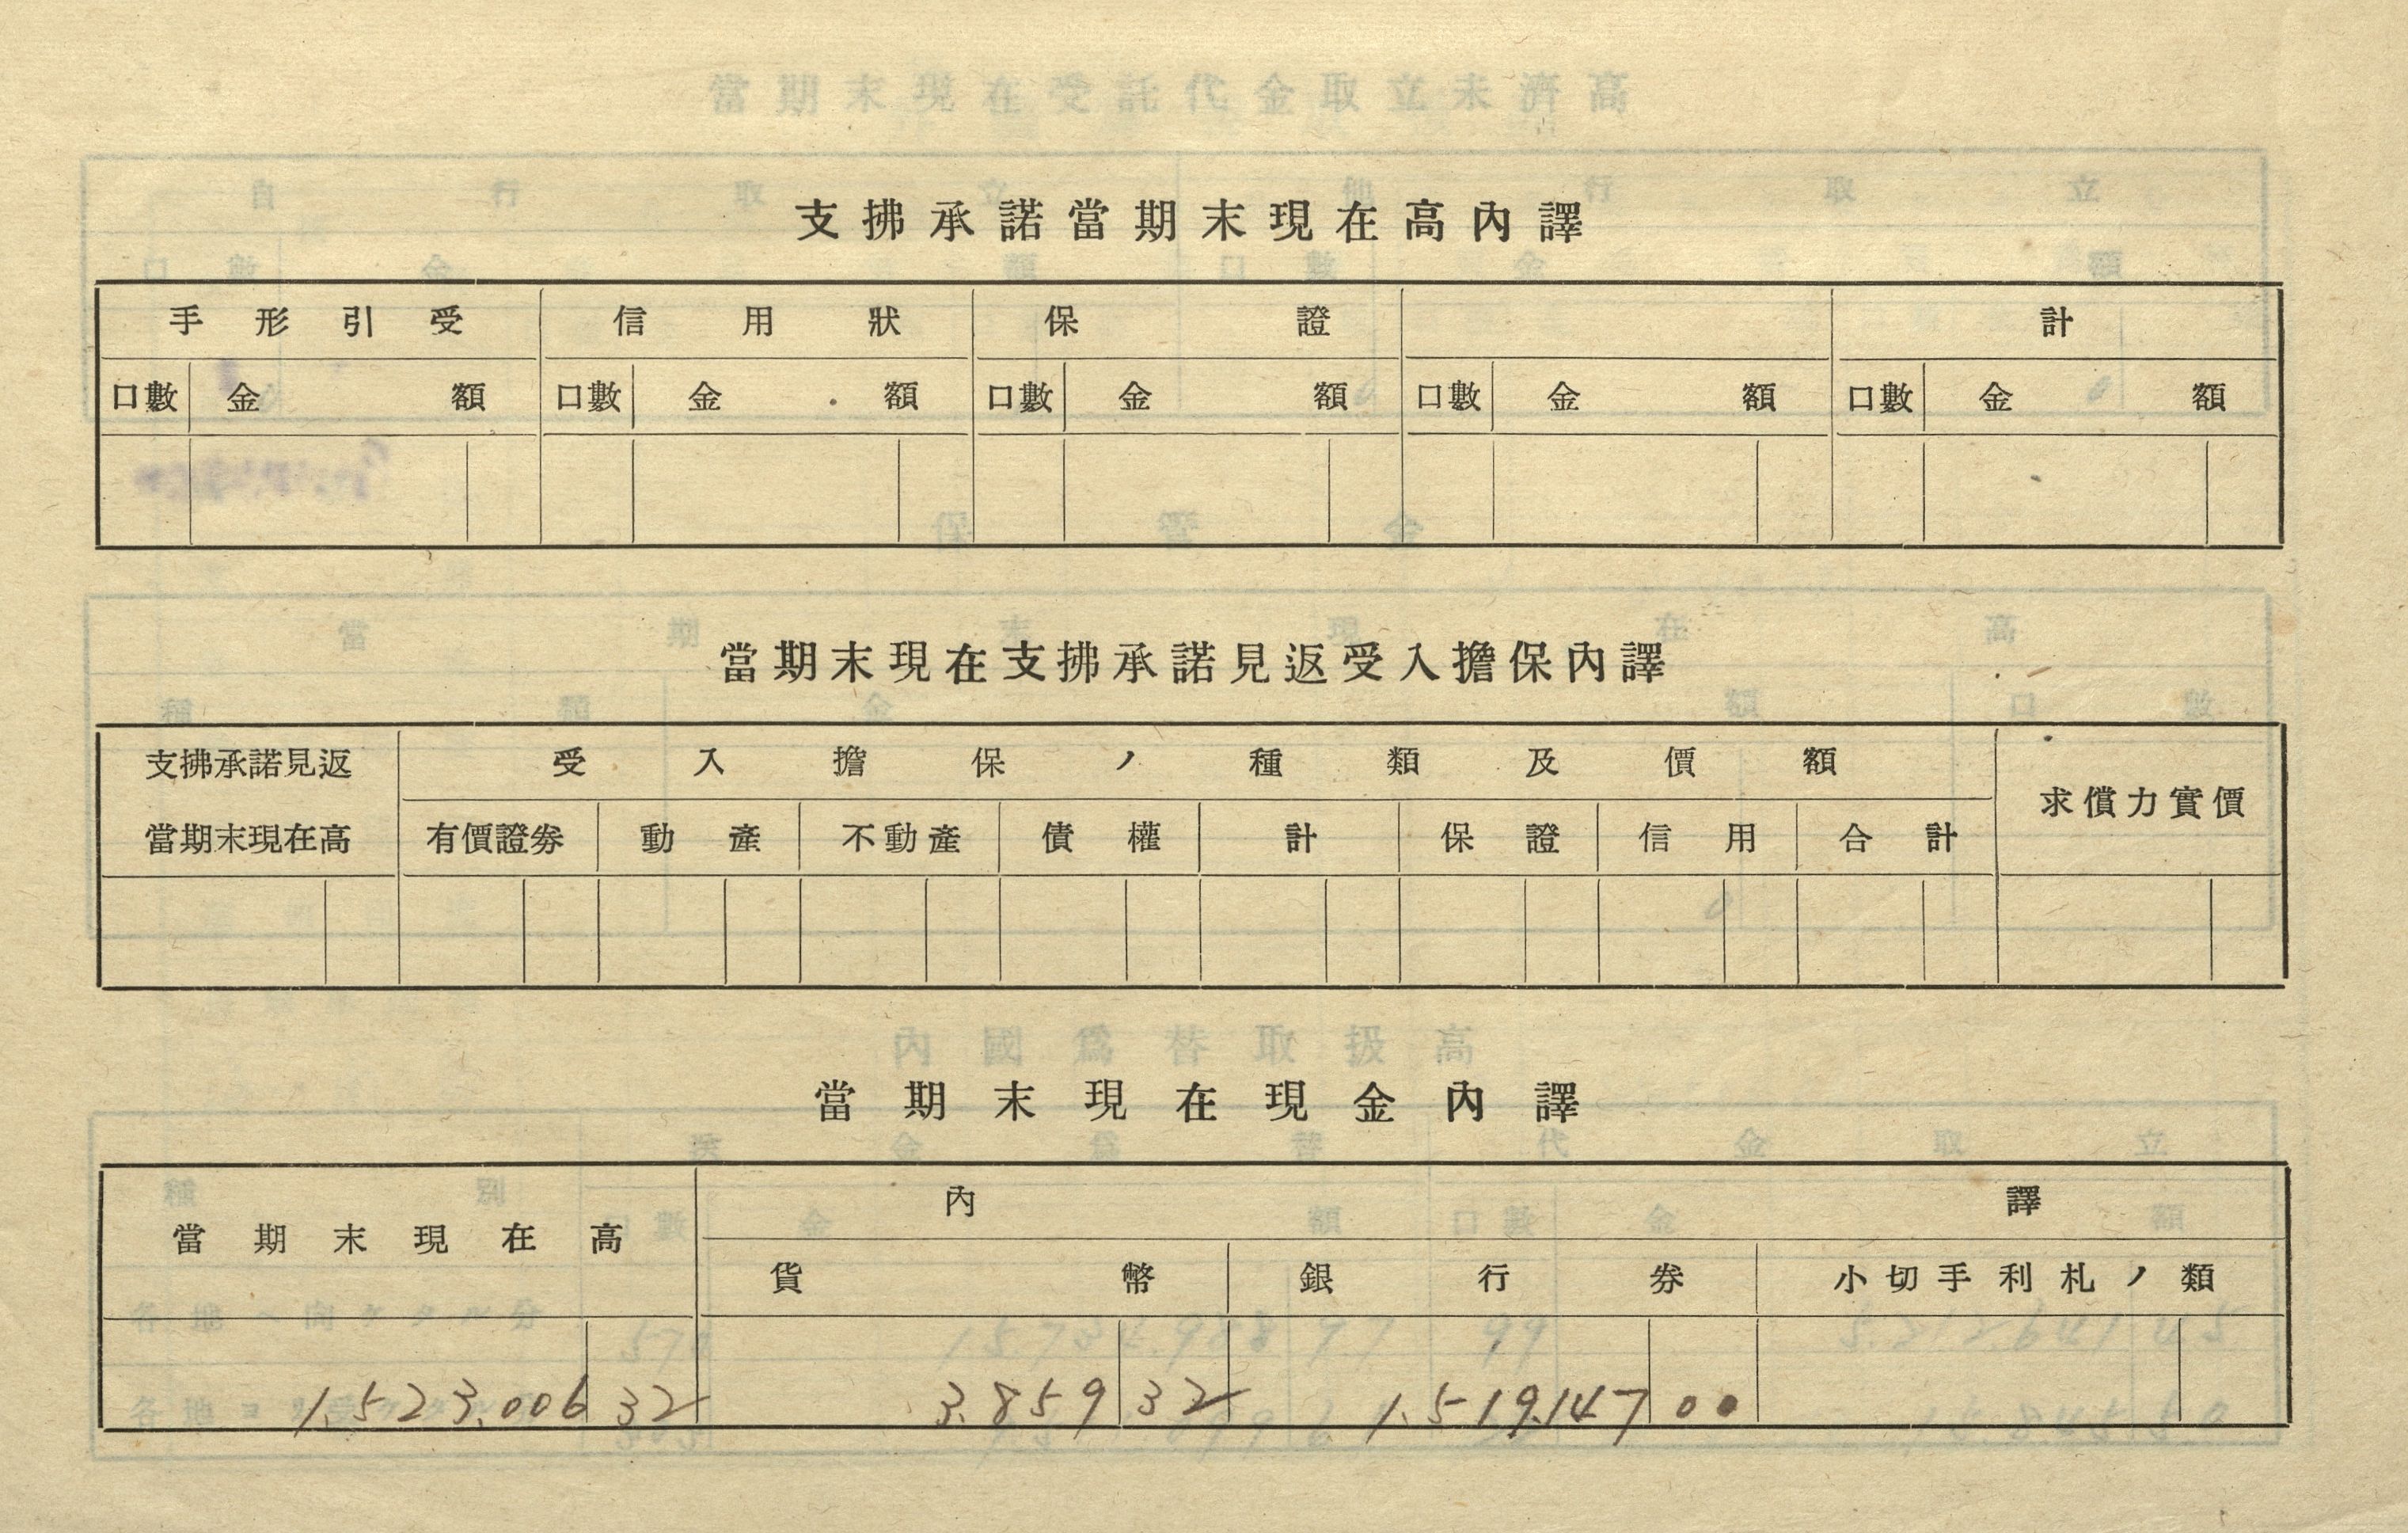 支拂承諾當期末現在高內譯
手形引受 信用狀 保證 計
口數 金額 口數 金額 口數 金額 口數 金額 口數 金額
當期末現在支拂承諾見返受入擔保內譯
支拂承諾見返 受入擔保ノ種類及價額 求償力實價
當期末現在高 有價證券 動產 不動產 債權 計 保證 信用 合計
當期末現在現金內譯
當期末現在高 內譯
貨幣 銀行券 小切手利札ノ類
1.523.006 32 3.859 32 1.519.147 00